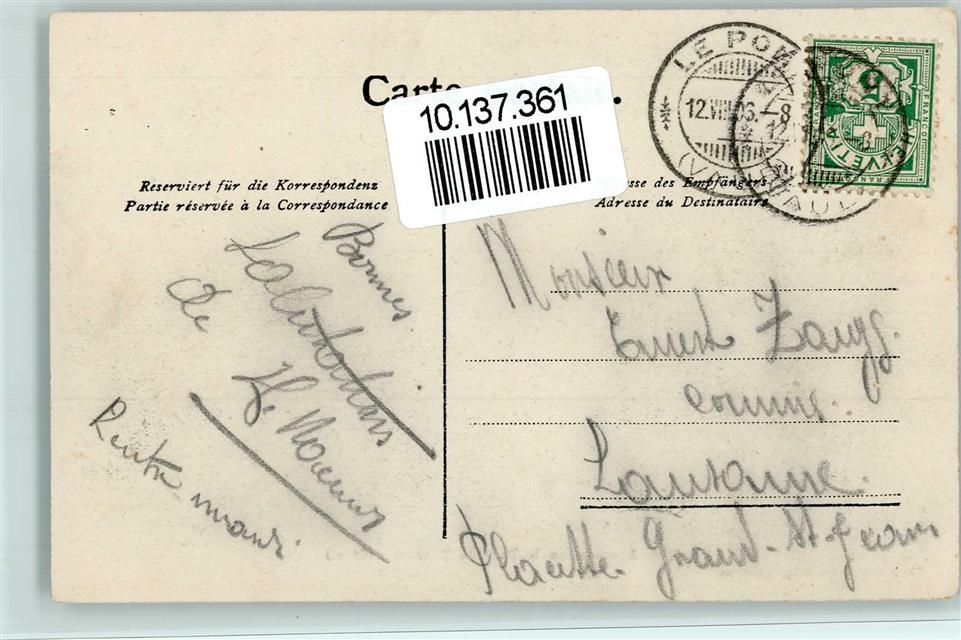 Carte
10.137.361
LE PON
12.VIII.06.-8
HELVETIA
FRANCO
5
Reserviert für die Korrespondenz
Partie réservée à la Correspondance
sse des Empfängers
Adresse du Destinataire
Bonnes
Salutations
de
Rentre mardi.
Monsieur
Ernest Zaugg.
commis.
Lausanne.
Placette Grand-St-Jean